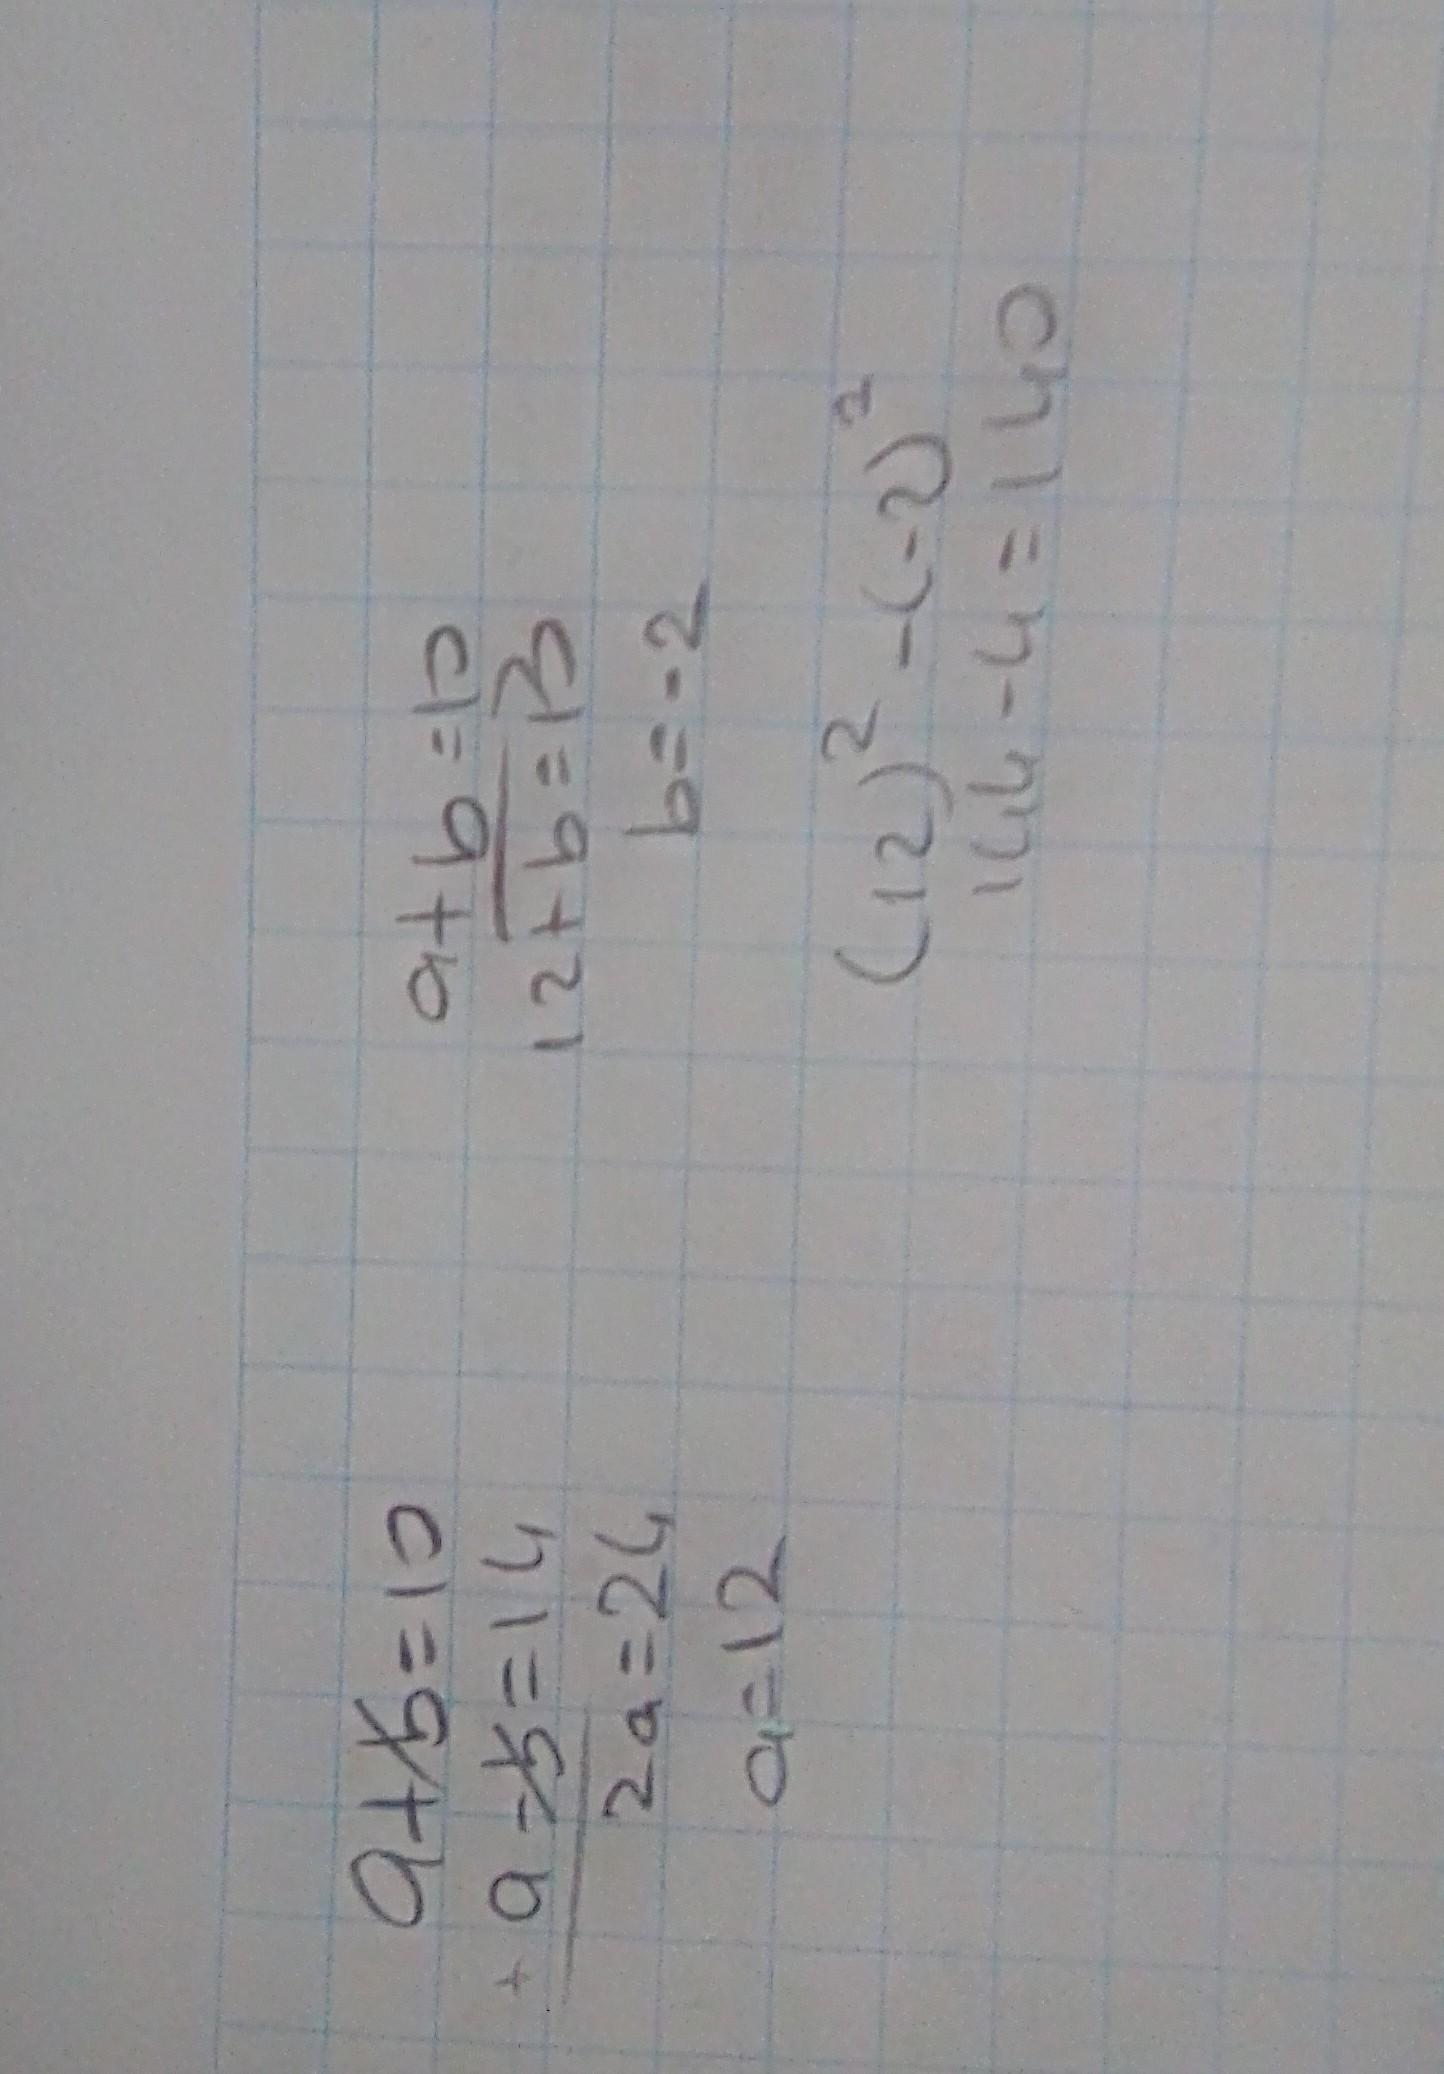 a+b=10
+ a-b=14
2a=24
a=12
a+b=10
12+b=10
b=-2
(12)²-(-2)²
144-4=140